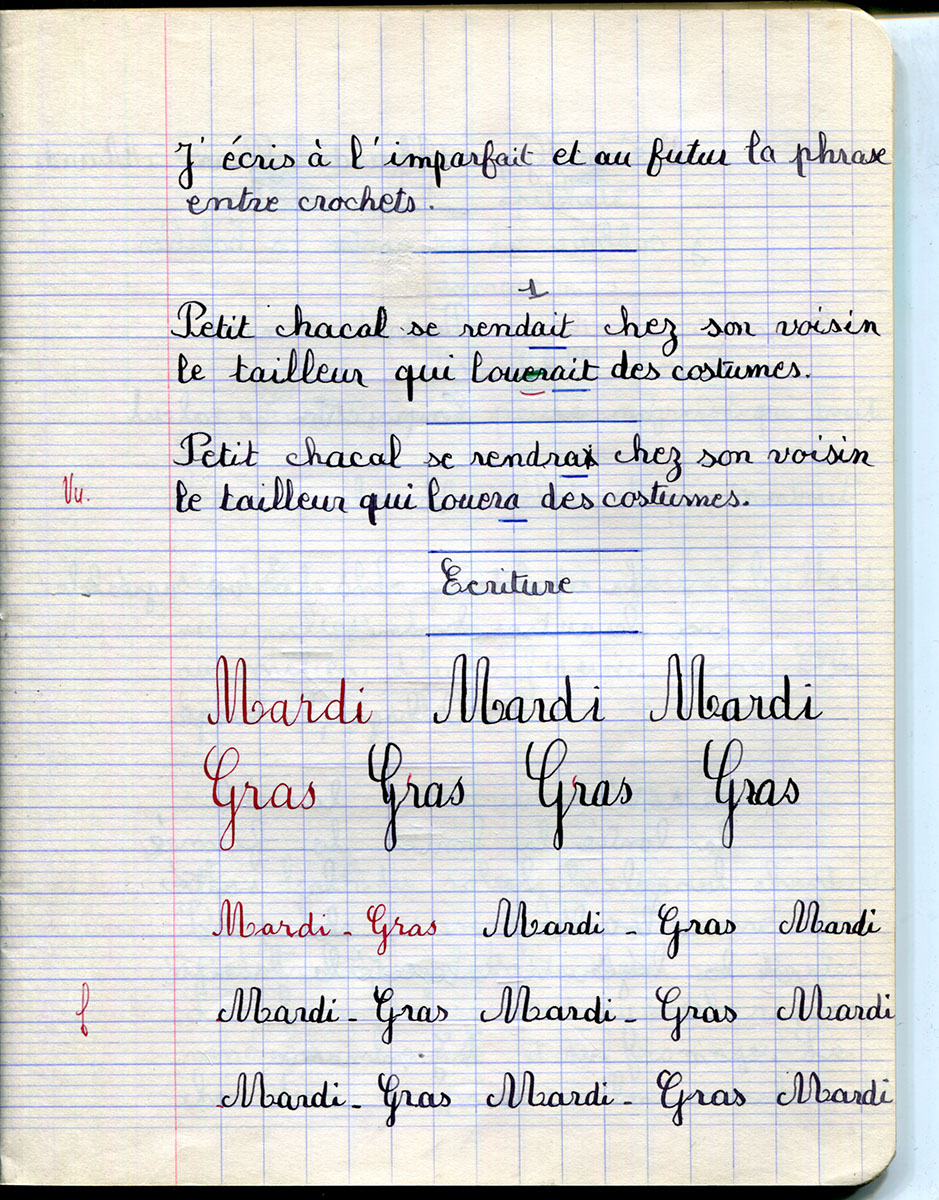 J'écris à l'imparfait et au futur la phrase
entre crochets.
1
Petit chacal se rendait chez son voisin
le tailleur qui louerait des costumes.
Petit chacal se rendrai chez son voisin
Vu.
le tailleur qui louera des costumes.
Ecriture
Mardi Mardi Mardi
Gras Gras Gras Gras
Mardi - Gras Mardi - Gras Mardi
Mardi - Gras Mardi - Gras Mardi
Mardi - Gras Mardi - Gras Mardi